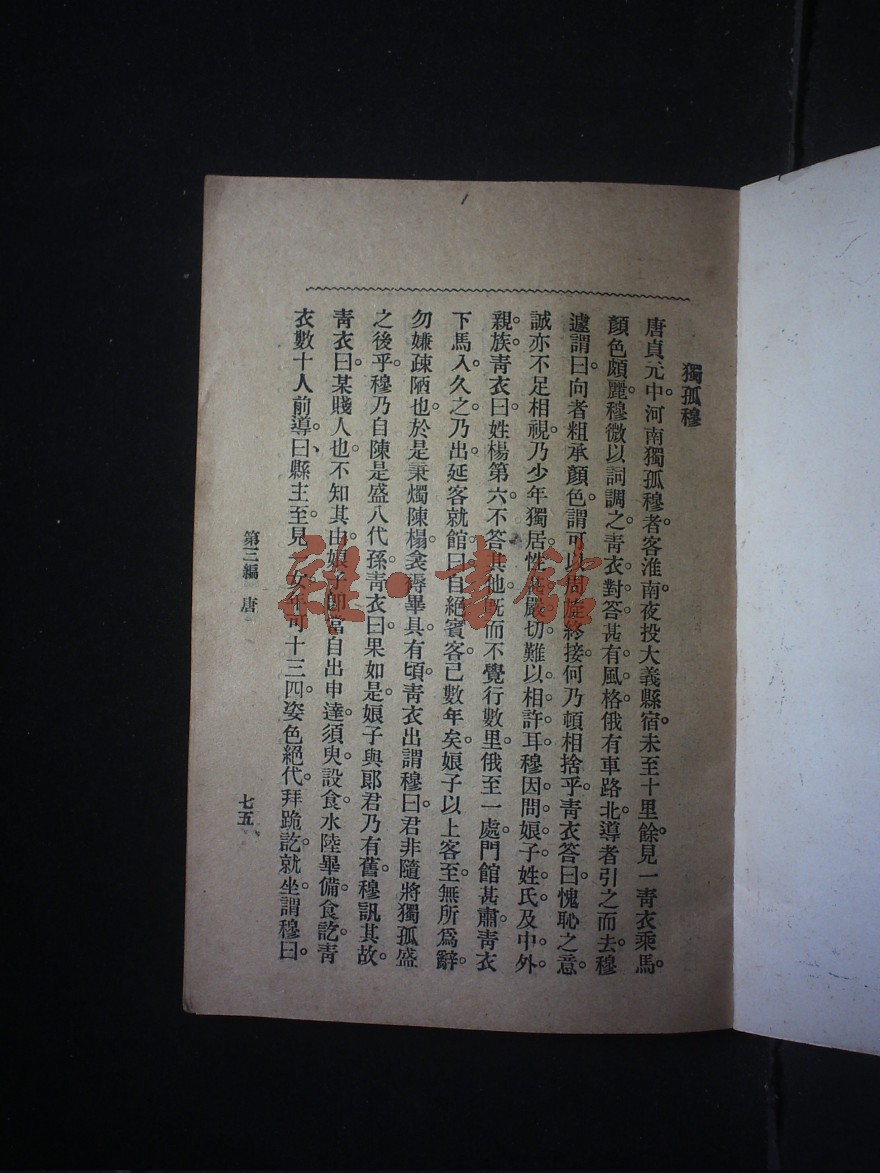 獨孤穆
唐貞元中。河南獨孤穆者。客淮南。夜投大義縣宿。未至十里餘。見一靑衣乘馬。
顏色頗麗。穆微以詞調之。靑衣對答甚有風格。俄有車路北。導者引之而去。穆
遽謂曰。向者粗承顏色。謂可以周旋終接。何乃頓相捨乎。靑衣答曰。愧恥之意。
誠亦不足相視。乃少年獨居。性甚嚴切。難以相許耳。穆因問娘子姓氏及中外
親族。靑衣曰。姓楊第六。不答其他。旣而不覺行數里。俄至一處。門館甚肅。靑衣
下馬入。久之。乃出延客就館曰。自絕賓客。已數年矣。娘子以上客至。無所爲辭。
勿嫌疎陋也。於是秉燭陳榻。衾褥畢具。有頃。靑衣出謂穆曰。君非隨將獨孤盛
之後乎。穆乃自陳是盛八代孫。靑衣曰。果如是。娘子與郞君乃有舊。穆訊其故。
靑衣曰。某賤人也。不知其由。娘子卽當自出申達。須臾設食。水陸畢備。食訖。靑
衣數十人前導。曰。縣主至。見一女。年可十三四。姿色絕代。拜跪訖。就坐。謂穆曰。
第三編 唐
七五
雜·書館